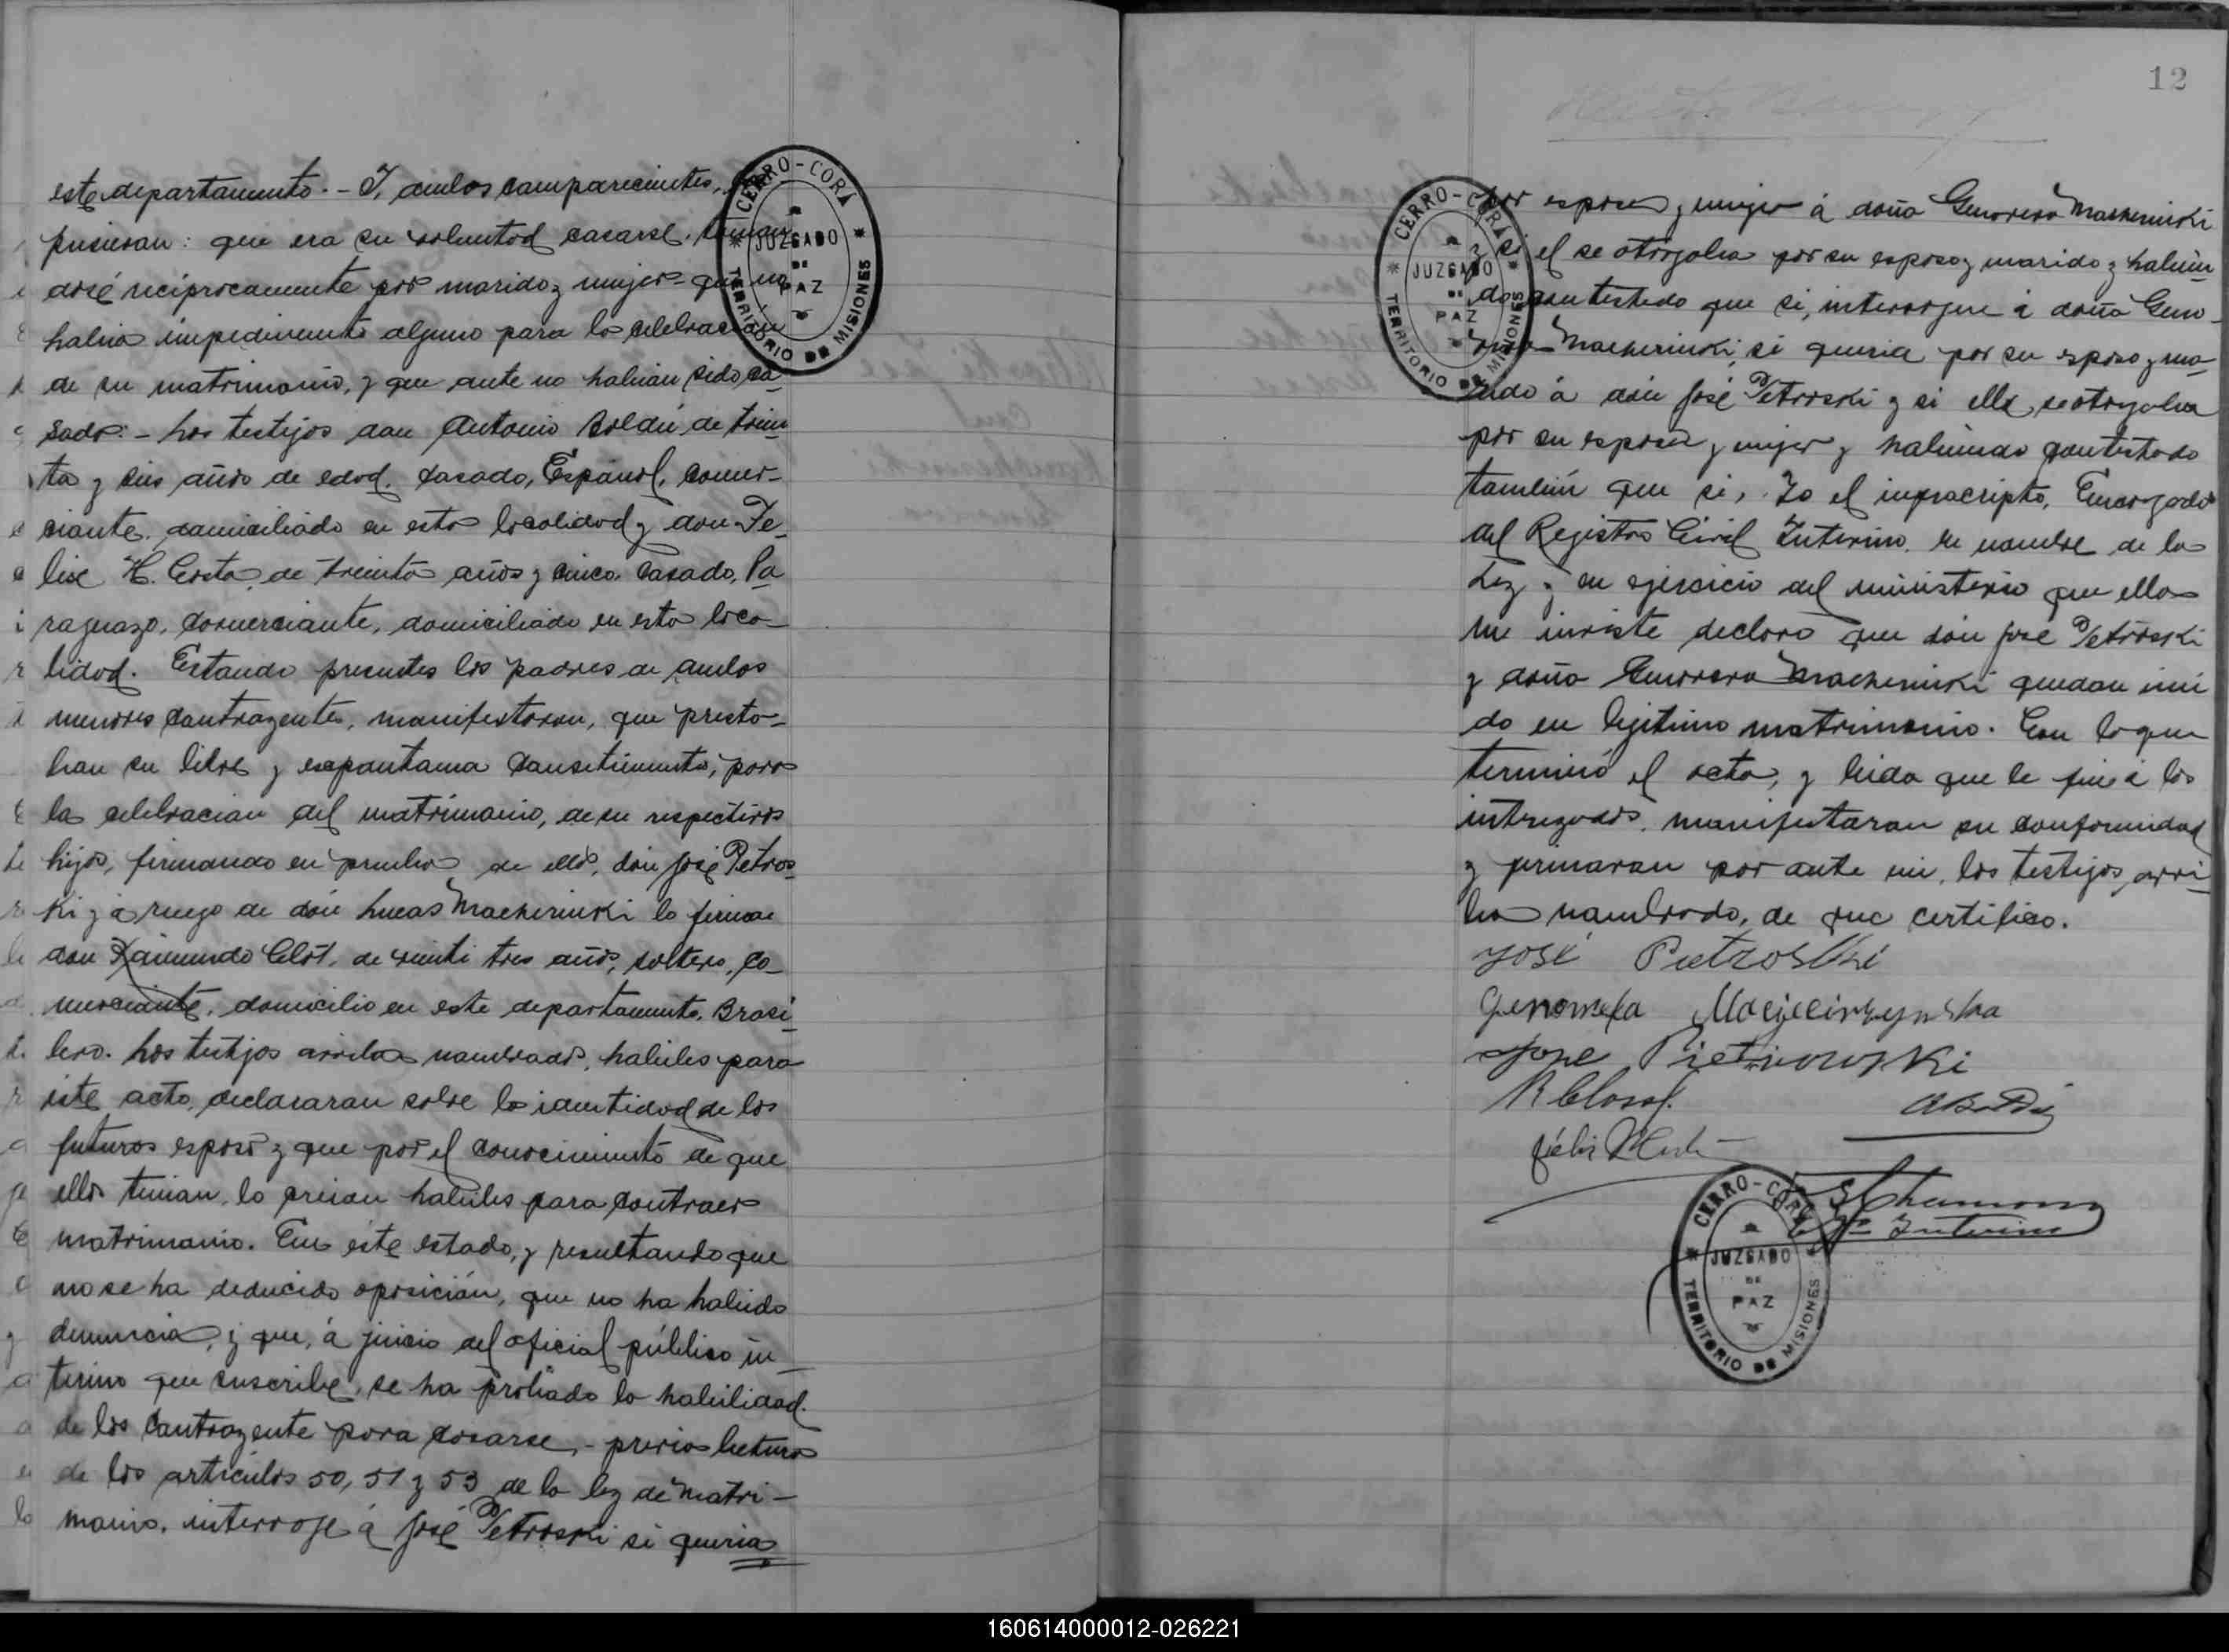 este departamento. - I, ambos comparecientes,
pusieran: que era su voluntad casarse, toman
dose recíprocamente por marido y mujer - que no
habia impedimento alguno para la celebracion
de su matrimonio, y que ante no habian sido ca-
sado: - Los testijos don Antonio Boldú, de trein
ta y seis años de edad, casado, Español, comer-
ciante, domiciliado en esta localidad y don Fe-
lise H. Costa, de treinta años y cinco, casado, Pa
raguayo, comerciante, domiciliado en esta loca-
lidad. Estando presentes los padres de ambos
menores contrayentes, manifestaron, que presta-
han su libre y espontama consetimiento, para
la celebracian del matrimonio, de su respectivos
hijos, firmando en prueba de ello, don José Petros
ki y a ruego de don Lucas Macherinski lo firma
don Raimundo Clos, de veinti tres años, soltero, co-
merciante, domicilio en este departamento, Brasi
lero. Los testijos arriba nombrados, habiles para
iste acto, declararan sobre la identidad de los
futuros esposo y que por el conocimiento de que
ellos tenian, lo creian habiles para contraer
matrimonio. En este estado, y resultando que
no se ha deducido oposición, que no ha habido
denuncia, y que, á juicio del oficial público in-
terino que suscribe, se ha probado la habilidad
de los contrayente para casarse, - previa lectura
de los articulos 50, 51 y 53 de la ley de matri-
monio. interroje á José Petroski si queria
12
por esposa y mujer á doña Genoveva Macherinski
y si el se otorgaba por su esposo y marido y habien
do contestado que si, interrogue á doña Geno-
veva Macherinski, si queria por su esposo y ma-
rido á don José Petroski y si ella se otorgaba
por su esposa y mujer y habiendo contestado
tambien que si, Yo el infrascripto, Encargado
del Registro Civil Interino, en nombre de la
Ley y en ejercicio del ministerio que ella
me inviste declaro que don José Petroski
y doña Genoveva Macherinski quedan uni
do en lejitimo matrimonio. Con lo que
terminó el acto, y leida que le fué á los
intregados, manifestaran su conformidad
y firmaran por ante mi, los testijos arri-
ba nombrado, de que certifico.
José Pietroski
Genowefa
Jose Pietrowski
R Closas.
Félix H Costa
Interino
CERRO-CORÁ
JUZGADO
DE
PAZ
TERRITORIO DE MISIONES
CERRO-CORÁ
JUZGADO
DE
PAZ
TERRITORIO DE MISIONES
CERRO-CORÁ
JUZGADO
DE
PAZ
TERRITORIO DE MISIONES
160614000012-026221